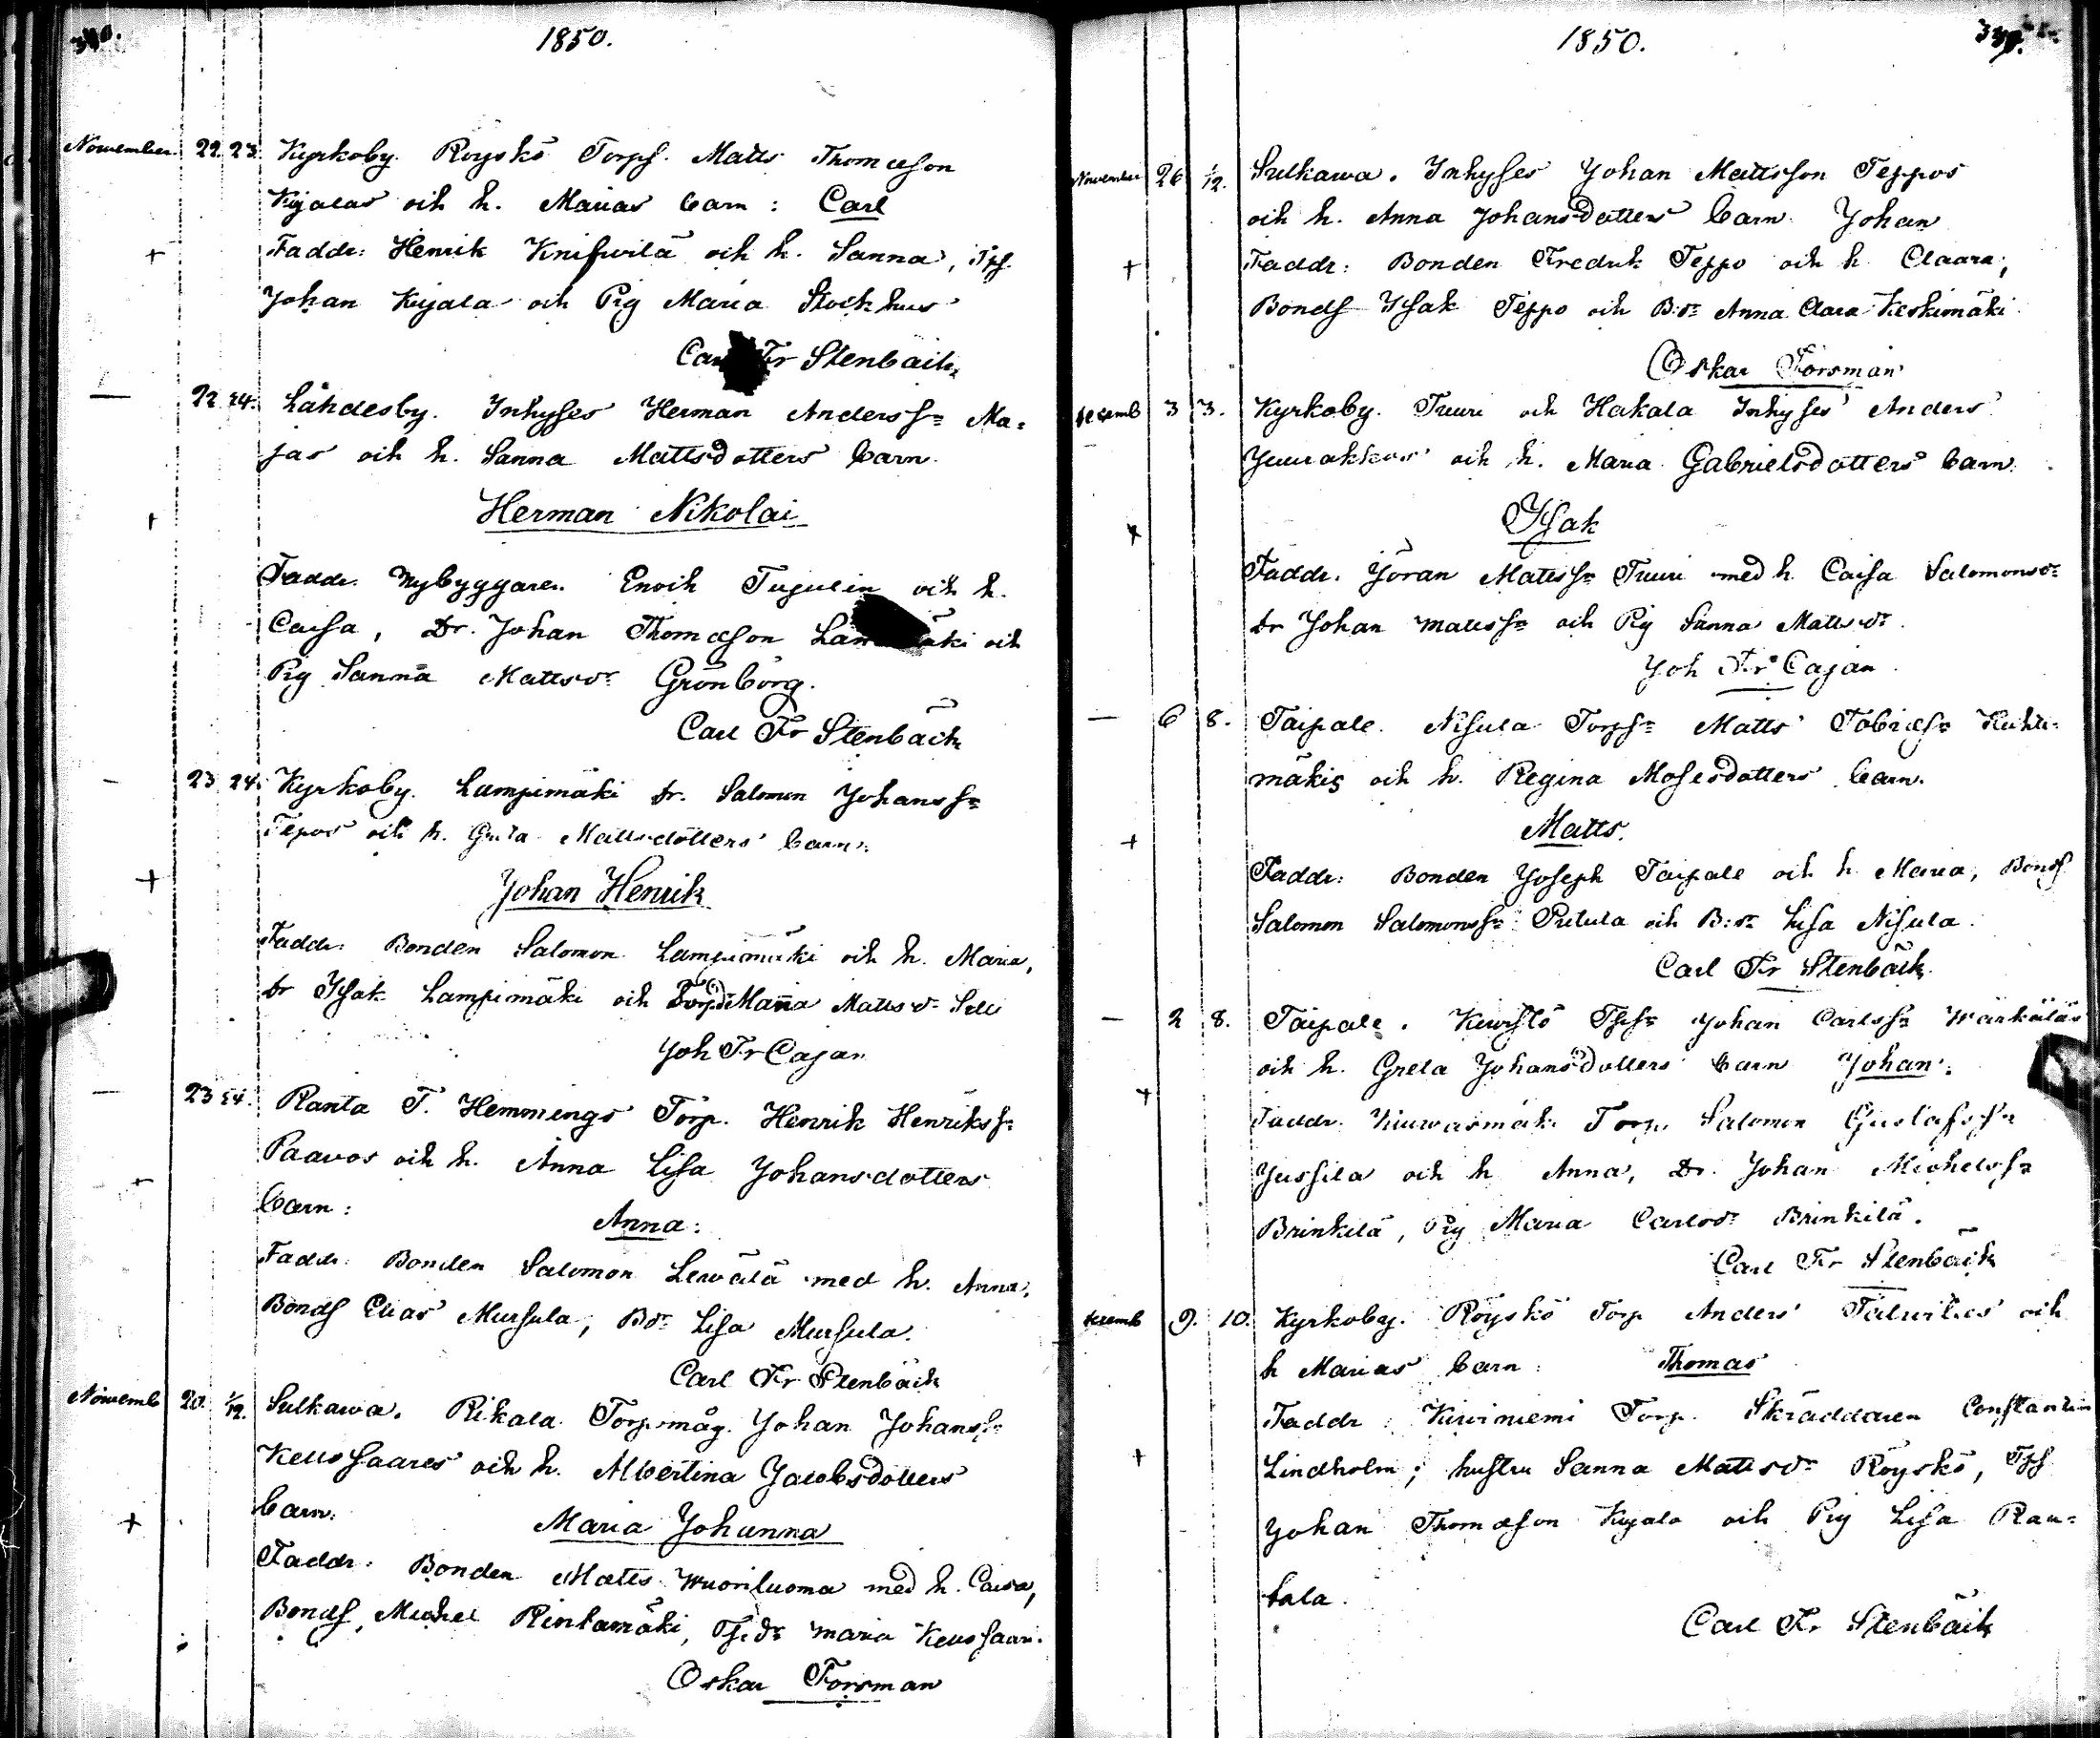 1850.
November 22 23. Kyrkoby. Royskö Torps. Matts Thomasson
Kijalas och h. Marias barn: Carl
Faddr: Henrik Knifvilä och h. Sanna, Tps.
Johan Kijala och Pig Maria Stockhus
Carl Fr Stenbäck
— 22 24. Lähdesby. Inhyses Herman Anderss: Ma=
jas och h. Sanna Mattsdotters barn.
Herman Nikolai
Faddr. Nybyggaren Enoch Tujulin och h.
Caisa, Dr. Johan Thomasson och
Pig Sanna Mattsdr Grönborg.
Carl Fr Stenbäck
— 23 24. Kyrkoby. Lampimäki dr. Salomon Johanss:
Tepos och h. Greta Mattsdotters barn:
Johan Henrik
Faddr: Bonden Salomon Lampimäki och h. Maria,
dr Isak Lampimäki och Maria Mattsdr
Joh Fr Cajan
— 23 24. Ranta T. Hemmings Torp. Henrik Henrikss:
Paavos och h. Anna Lisa Johansdotters
barn:
Anna:
Faddr: Bonden Salomon Lewälä med h. Anna,
Bonds Elias Mursula, Bdr Lisa Mursula.
Carl Fr Stenbäck
Novemb 20. 1/12. Sulkava. Rikala Torp.måg. Johan Johanss:
Keussaares och h. Albertina Jacobsdotters
barn.
Maria Johanna
Faddr: Bonden Matts Wuoriluoma med h. Caisa,
Bonds, Michel Rintamäki, Ts.dr Maria Keussaari.
Oskar Forsman
1850.
November 26 1/12. Sulkawa. Inhyses Johan Mattsson Teppos
och h. Anna Johansdotters barn Johan
Faddr: Bonden Fredrik Teppo och h Claara,
Bonds Isak Teppo och B:dr Anna Clara Keskimäki
Oskar Forsman
Decemb 3 3. Kyrkoby. Tuuri och Hakala Inhyses Anders
Juurakkos och h. Maria Gabrielsdotters barn.
Isak
Faddr. Jöran Matss: Tuuri med h. Caisa Salomonsdr
dr Johan Matss: och Pig Sanna Mattsdr.
Joh Fr Cajan
— 6 8. Taipale. Nisula Torps: Matts Tobiass: Huhta-
mäkis och h. Regina Mosesdotters barn.
Matts.
Faddr: Bonden Joseph Taipale och h Maria, Bonds
Salomon Salomonss: Putula och B:dr Lisa Nisula.
Carl Fr Stenbäck
— 2 8. Taipale. Kewistö Tps: Johan Carlss: Wärkäläs
och h. Greta Johansdotters barn Johan.
Faddr. Kiuwasmäki Torp. Salomon Gustafss:
Jussila och h Anna, Dr. Johan Michelss:
Brinkilä, Pig Maria Carlsdr Brinkilä.
Carl Fr Stenbäck
Decemb 9. 10. Kyrkoby. Röyskö Torp Anders Talwities och
h Marias barn: Thomas
Faddr: Kiviniemi Torp. Skräddaren Constantin
Lindholm; hustru Sanna Mattsdr Röyskö, Tps
Johan Thomasson Kijala och Pig Lisa Rau=
tala.
Carl Fr Stenbäck